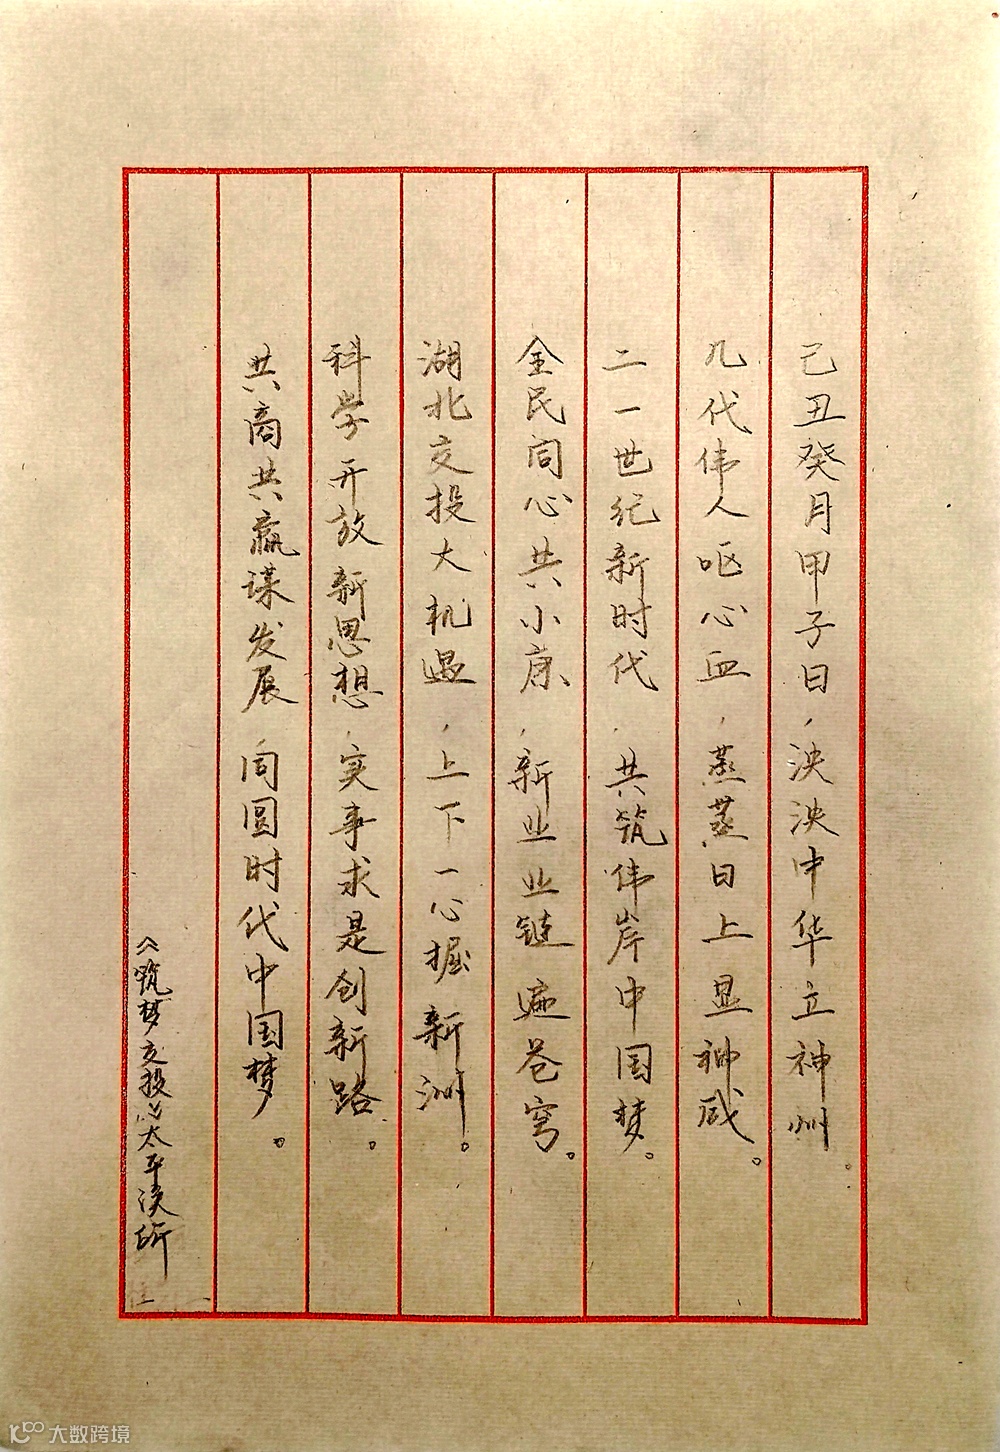 己丑癸月甲子日，泱泱中华立神州。
几代伟人呕心血，蒸蒸日上显神威。
二一世纪新时代，共筑伟岸中国梦。
全民同心共小康，新业业链遍苍穹。
湖北交投大机遇，上下一心掘新洲。
科学开放新思想，实事求是创新路。
共商共赢谋发展，同圆时代中国梦。
《筑梦交投》太平溪所
大数跨境